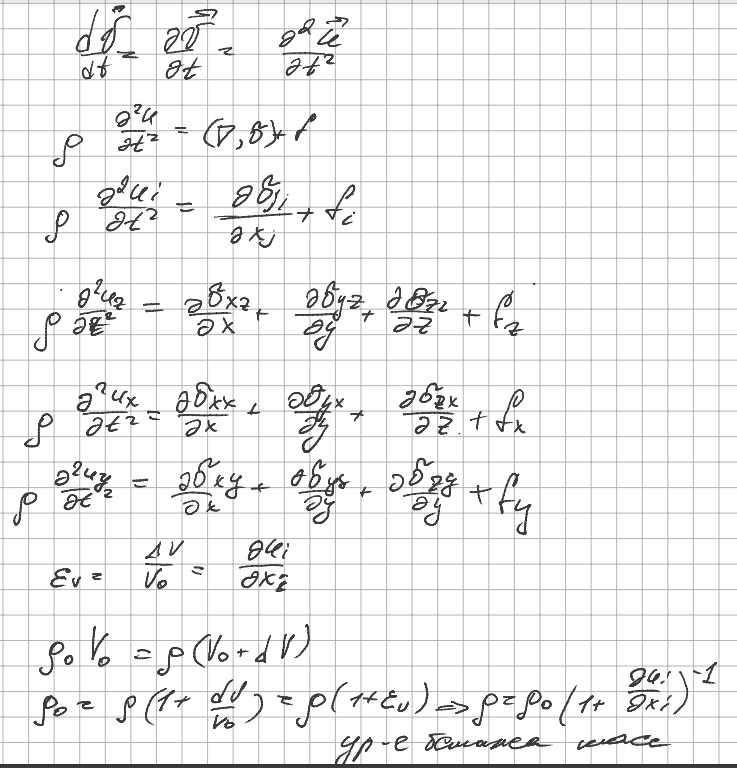 dv⃗/dt = ∂v⃗/∂t = ∂²u⃗/∂t²
ρ ∂²u/∂t² = (∇,σ)+f
ρ ∂²uᵢ/∂t² = ∂σⱼᵢ/∂xⱼ + fᵢ
ρ ∂²u_z/∂t² = ∂σxz/∂x + ∂σyz/∂y + ∂σzz/∂z + f_z
ρ ∂²uₓ/∂t² = ∂σxx/∂x + ∂σyx/∂y + ∂σzx/∂z + fₓ
ρ ∂²u_y/∂t² = ∂σxy/∂x + ∂σyy/∂y + ∂σzy/∂y + f_y
εᵥ = ΔV/V₀ = ∂uᵢ/∂xᵢ
ρ₀ V₀ = ρ(V₀ + dV)
ρ₀ = ρ(1 + dV/V₀) = ρ(1+εᵥ) ⇒ ρ = ρ₀(1 + ∂uᵢ/∂xᵢ)⁻¹
ур-е баланса масс